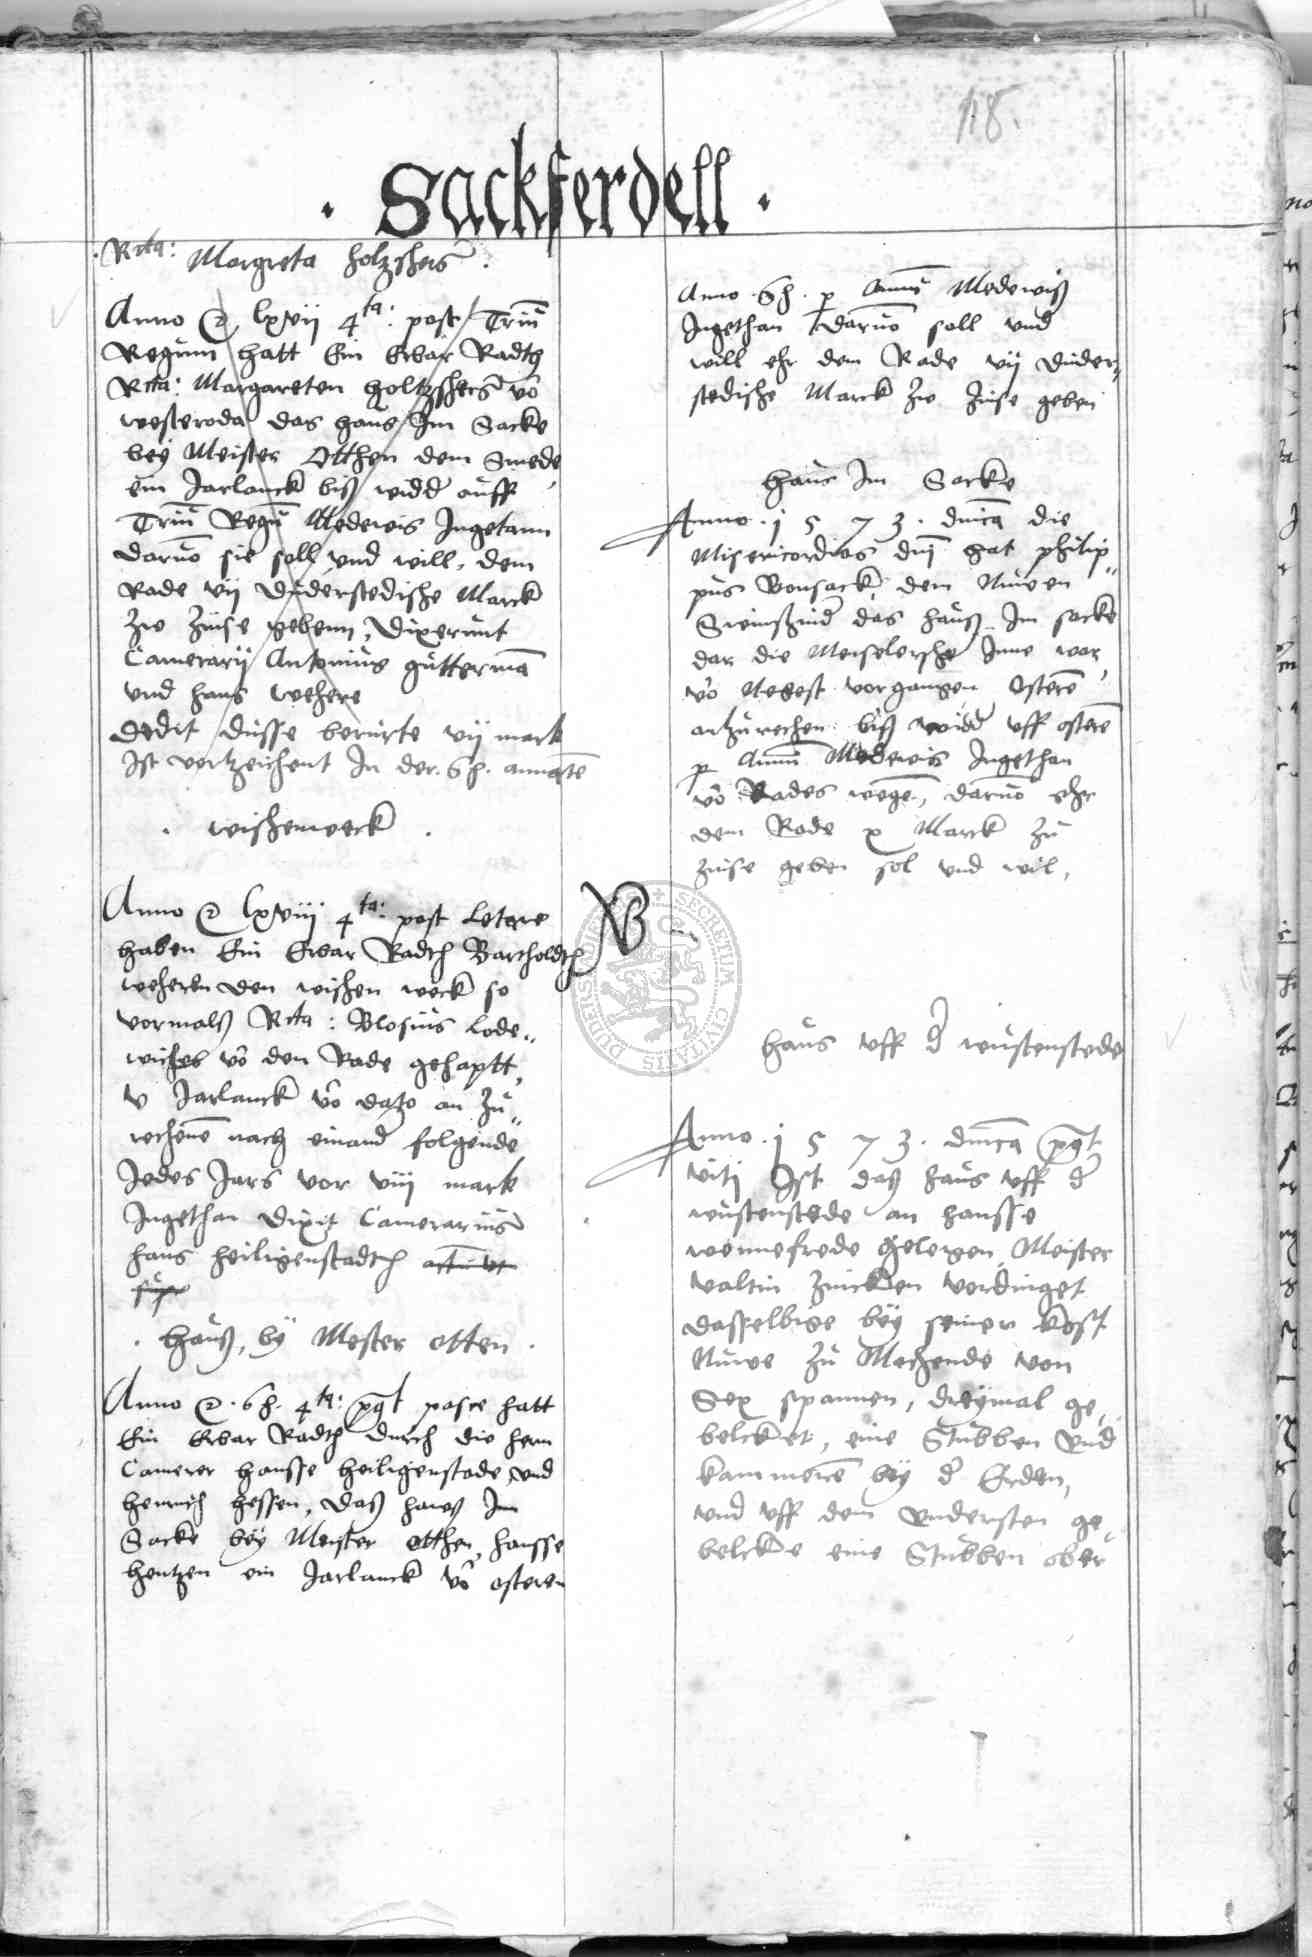 118.
. Sackferdell .
. Rcta: Margreta holzshers .
Anno &c lxvii 4ta: post Triũ
Regum hatt Ein Erbar Radth
Rcta: Margareten holtzshers võ
westeroda das haus Im Sacke
bey Meister Otthen dem Smede
ein Jarlanck biß widd auff
Triũ Regũ Medewis Ingetann
daruõ sie soll vnd will, dem
Rade vij Duderstedishe Marck
zw Zinse gebenn, Dixerunt
Camerarij Antonius guttermã
vnd hans wehere
Dedit dusse berurte vij mark
Ist vortzeichent In der .68. annatẽ
. wishenweck .
Anno &c lxviij 4ta: post Letare
haben Ein Erbar Radth Bartholdth
weheren den wishen weck so
vormalß Rcta: Blosius Lode„
wiches võ den Rade gehaptt,
v Jarlanck võ dato an zu„
rechenẽ nach einand folgende
Jedes Jars vor viij mark
Ingethan Dixit Camerarius
hans heiligenstadth actũ ut
sup
. hauß, by Mester otten .
Anno &c .68. 4ta: pqt pasce hatt
Ein Erbar Radth durch die hern
Camerer hansse heiligenstade vnd
henrich hessen, daß hauß Im
Sacke bey Meister Otthen, hansse
hentzen ein Jarlanck võ osteren
Anno .68. p Annũ Medewiß
Ingethan daruõ soll vnd
will ehr dem Rade vij duder„
stedishe Marck zw Zinse geben
hauß Im Sacke
Anno .1573. dnica die
Misericordias dnj hat philip„
pus Bonsack, dem Nuwen
das hauß Im sacke
dar die Meiselershe Inne war,
võ Negest vorgangen Osterẽ
antzurechen biß widd vff osterẽ
p Annũ Medewis Ingethan
võ Rades wegẽ, daruõ ehr
dem Rade x Marck zu
zinse geben sol vnd wil,
NB
SECRETUM CIVITATIS DUDERSTADIENSIS
hauß vff d wustenstede
Anno .1573. dnica pqt
viti Ist daß hauß vff d
wustenstede an hansse
wennefrede gelegen, Meister
valtin Zwicken vordinget
dasselbige bey seiner kost
Nuwe zu Machende von
Sex spannen, dreymal ge„
belcket, eine Stubben vnd
kammerẽ bey d Erden,
vnd vff dem vndersten ge„
belcke eine Stubben ober